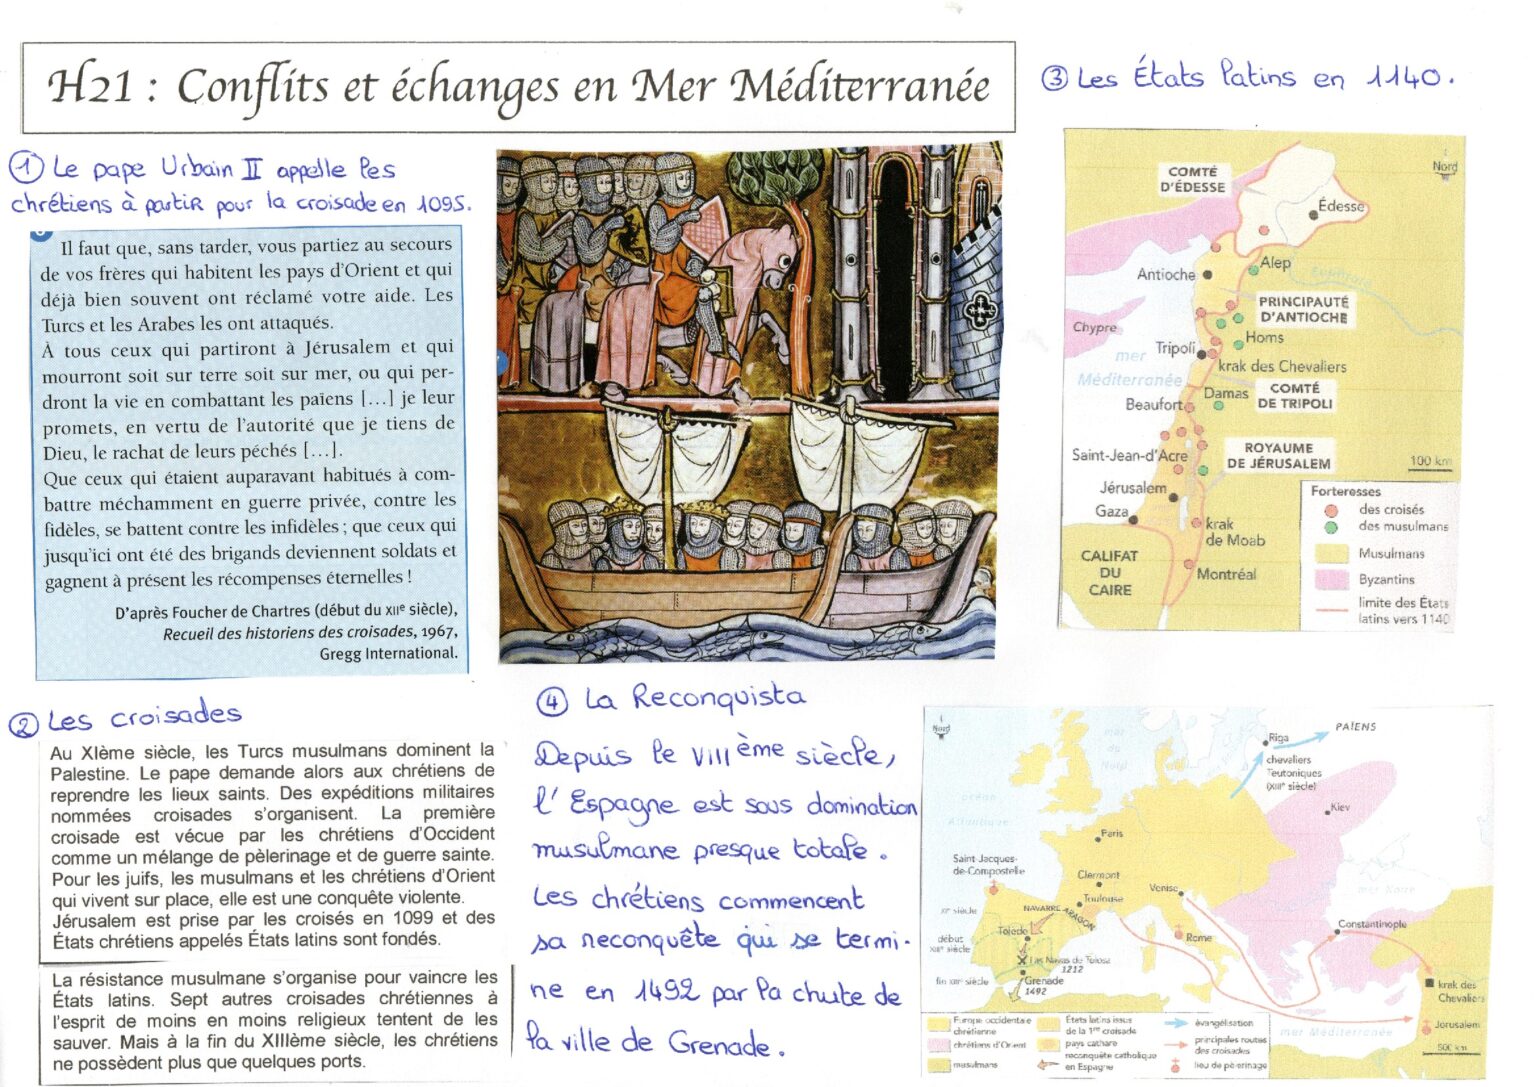 H21 : Conflits et échanges en Mer Méditerranée
① Le pape Urbain II appelle les
chrétiens à partir pour la croisade en 1095.
Il faut que, sans tarder, vous partiez au secours
de vos frères qui habitent les pays d'Orient et qui
déjà bien souvent ont réclamé votre aide. Les
Turcs et les Arabes les ont attaqués.
À tous ceux qui partiront à Jérusalem et qui
mourront soit sur terre soit sur mer, ou qui per-
dront la vie en combattant les païens [...] je leur
promets, en vertu de l'autorité que je tiens de
Dieu, le rachat de leurs péchés [...].
Que ceux qui étaient auparavant habitués à com-
battre méchamment en guerre privée, contre les
fidèles, se battent contre les infidèles ; que ceux qui
jusqu'ici ont été des brigands deviennent soldats et
gagnent à présent les récompenses éternelles !
D'après Foucher de Chartres (début du XIIe siècle),
Recueil des historiens des croisades, 1967,
Gregg International.
② Les croisades
Au XIème siècle, les Turcs musulmans dominent la
Palestine. Le pape demande alors aux chrétiens de
reprendre les lieux saints. Des expéditions militaires
nommées croisades s'organisent. La première
croisade est vécue par les chrétiens d'Occident
comme un mélange de pèlerinage et de guerre sainte.
Pour les juifs, les musulmans et les chrétiens d'Orient
qui vivent sur place, elle est une conquête violente.
Jérusalem est prise par les croisés en 1099 et des
États chrétiens appelés États latins sont fondés.
La résistance musulmane s'organise pour vaincre les
États latins. Sept autres croisades chrétiennes à
l'esprit de moins en moins religieux tentent de les
sauver. Mais à la fin du XIIIème siècle, les chrétiens
ne possèdent plus que quelques ports.
③ Les États latins en 1140.
Nord
COMTÉ
D'ÉDESSE
Édesse
Alep
Antioche
Euphrate
PRINCIPAUTÉ
D'ANTIOCHE
Chypre
Homs
mer
Méditerranée
Tripoli
krak des Chevaliers
Damas
COMTÉ
DE TRIPOLI
Beaufort
Saint-Jean-d'Acre
ROYAUME
DE JÉRUSALEM
100 km
Jérusalem
Gaza
krak
de Moab
CALIFAT
DU
CAIRE
Montréal
Forteresses
des croisés
des musulmans
Musulmans
Byzantins
limite des États
latins vers 1140
④ La Reconquista
Depuis le VIIIème siècle,
l'Espagne est sous domination
musulmane presque totale.
Les chrétiens commencent
sa reconquête qui se termi-
ne en 1492 par la chute de
la ville de Grenade.
Nord
mer
du
Nord
océan
Atlantique
Riga
PAÏENS
chevaliers
Teutoniques
(XIIIe siècle)
Kiev
Paris
Saint-Jacques-
de-Compostelle
Clermont
Toulouse
Venise
mer Noire
XIe siècle
NAVARRE
ARAGON
début
XIIIe siècle
Tolède
Rome
Constantinople
Las Navas de Tolosa
1212
fin XIIIe siècle
Grenade
1492
krak des
Chevaliers
Jérusalem
mer Méditerranée
500 km
Europe occidentale
chrétienne
chrétiens d'Orient
musulmans
États latins issus
de la 1re croisade
pays cathare
reconquête catholique
en Espagne
évangélisation
principales routes
des croisades
lieu de pèlerinage